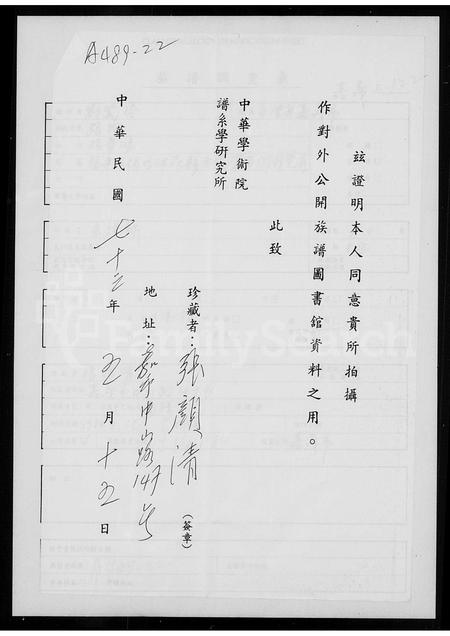 A489-22
茲證明本人同意貴所拍攝
作對外公開族譜圖書館資料之用。
此致
中華學術院
譜系學研究所
珍藏者：張顏清（簽章）
地址：嘉市中山路147号
中華民國七十三年五月十五日
FamilySearch